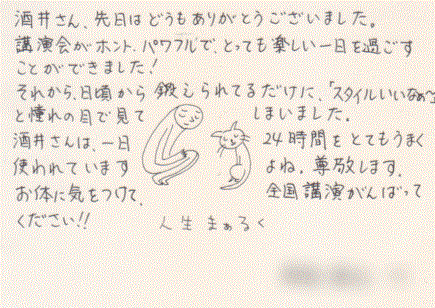 酒井さん、先日はどうもありがとうございました。
講演会がホント、パワフルで、とっても楽しい一日を過ごす
ことができました！
それから、日頃から鍛えられてるだけに、「スタイルいいなぁ〜」
と憧れの目で見て しまいました。
酒井さんは、一日 24時間をとてもうまく
使われています よね。尊敬します。
お体に気をつけて、 全国講演がんばって
ください!!
人生まぁるく